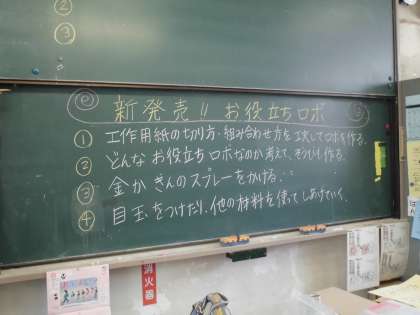 ②
③
新発売!! お役立ちロボ
① 工作用紙の切り方・組み合わせ方を工夫してロボを作る。
② どんなお役立ちロボなのか考えて、そうぞうし作る。
③ 金かぎんのスプレーをかける。
④ 目玉をつけたり、他の材料を使ってしあげていく。
消火器